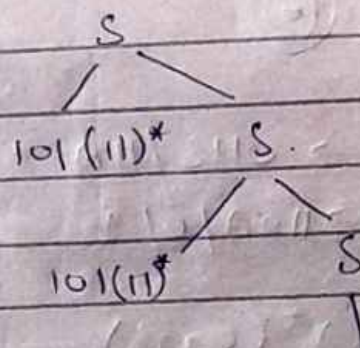 S
101(11)* S.
101(11)* S